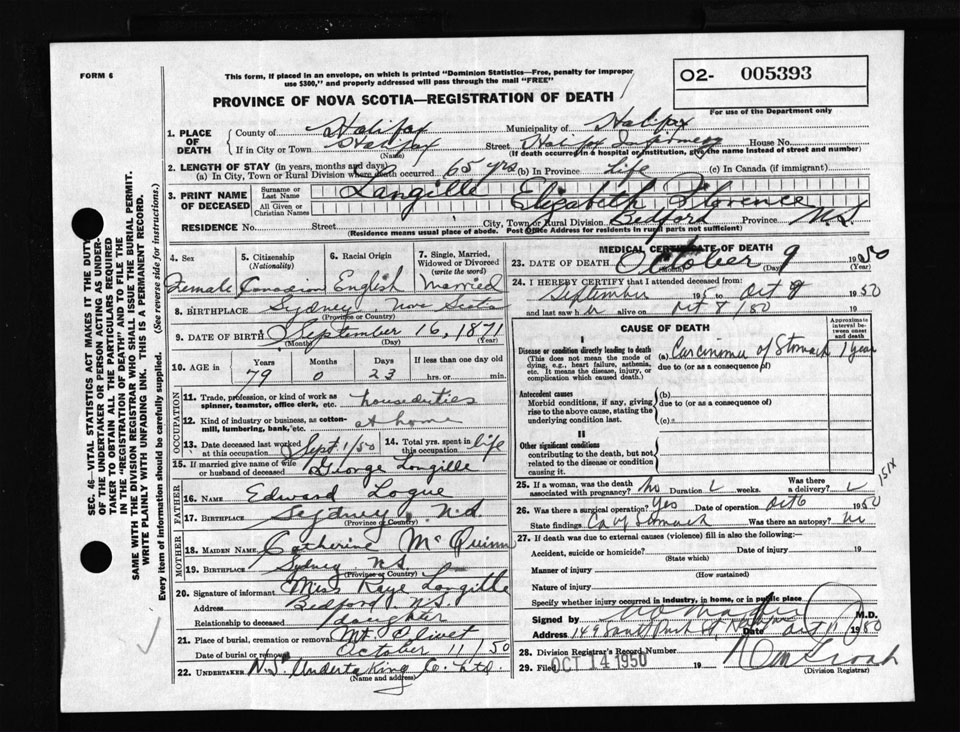 FORM 6
This form, if placed in an envelope, on which is printed "Dominion Statistics—Free, penalty for improper
use $300," and properly addressed will pass through the mail "FREE"
O2- 005393
For use of the Department only
PROVINCE OF NOVA SCOTIA—REGISTRATION OF DEATH
1. PLACE OF DEATH
County of Halifax Municipality of Halifax
If in City or Town Halifax (Name) Street Halifax Infirmary House No.
(If death occurred in a hospital or institution, give the name instead of street and number)
2. LENGTH OF STAY (in years, months and days)
(a) In City, Town or Rural Division where death occurred 65 yrs (b) In Province Life (c) In Canada (if immigrant)
3. PRINT NAME OF DECEASED
Surname or Last Name Langille
All Given or Christian Names Elizabeth Florence
RESIDENCE No. Street City, Town or Rural Division Bedford Province N.S.
(Residence means usual place of abode. Post Office Address for residents in rural parts not sufficient)
4. Sex Female
5. Citizenship (Nationality) Canadian
6. Racial Origin English
7. Single, Married, Widowed or Divorced (write the word) Married
8. BIRTHPLACE Sydney Nova Scotia
(Province or Country)
9. DATE OF BIRTH September 16, 1871
(Month) (Day) (Year)
10. AGE in Years Months Days If less than one day old
79 0 23 hrs. or min.
OCCUPATION
11. Trade, profession, or kind of work as spinner, teamster, office clerk, etc. houseduties
12. Kind of industry or business, as cotton-mill, lumbering, bank, etc. at home
13. Date deceased last worked at this occupation Sept 1/50 14. Total yrs. spent in this occupation life
15. If married give name of wife or husband of deceased George Langille
FATHER
16. NAME Edward Logue
17. BIRTHPLACE Sydney N.S.
(Province or Country)
MOTHER
18. MAIDEN NAME Catherine McQuinn
19. BIRTHPLACE Sydney N.S.
(Province or Country)
20. Signature of informant Miss Kaye Langille
Address Bedford N.S.
Relationship to deceased daughter
21. Place of burial, cremation or removal Mt. Olivet
Date of burial or removal October 11/50
22. UNDERTAKER N.S. Undertaking Co. Ltd.
(Name and address)
MEDICAL CERTIFICATE OF DEATH
23. DATE OF DEATH October 9 1950
(Month) (Day) (Year)
24. I HEREBY CERTIFY that I attended deceased from:
September 195 to Oct 9 1950
and last saw h alive on Oct 8/50 19
CAUSE OF DEATH
Approximate interval between onset and death
I
Disease or condition directly leading to death
(This does not mean the mode of dying, e.g., heart failure, asthenia, etc. It means the disease, injury, or complication which caused death.)
(a) Carcinoma of Stomach 1 year
due to (or as a consequence of)
Antecedent causes
Morbid conditions, if any, giving rise to the above cause, stating the underlying condition last.
(b)
due to (or as a consequence of)
(c)
II
Other significant conditions
contributing to the death, but not related to the disease or condition causing it.
151X
25. If a woman, was the death associated with pregnancy? no Duration weeks. Was there a delivery?
26. Was there a surgical operation? Yes Date of operation Oct 6 1950
State findings Ca of Stomach Was there an autopsy? no
27. If death was due to external causes (violence) fill in also the following:—
Accident, suicide or homicide? Date of injury 19
(State which)
Manner of injury
(How sustained)
Nature of injury
Specify whether injury occurred in industry, in home, or in public place
Signed by M.D.
Address 149 South Park St. Halifax Date Oct 11 1950
28. Division Registrar's Record Number
29. Filed OCT 14 1950 19
(Division Registrar)
SEC. 46—VITAL STATISTICS ACT MAKES IT THE DUTY
OF THE UNDERTAKER OR PERSON ACTING AS UNDER-
TAKER TO OBTAIN ALL THE PARTICULARS REQUIRED
IN THE "REGISTRATION OF DEATH" AND TO FILE THE
SAME WITH THE DIVISION REGISTRAR WHO SHALL ISSUE THE BURIAL PERMIT.
WRITE PLAINLY WITH UNFADING INK. THIS IS A PERMANENT RECORD.
Every item of information should be carefully supplied. (See reverse side for instructions.)